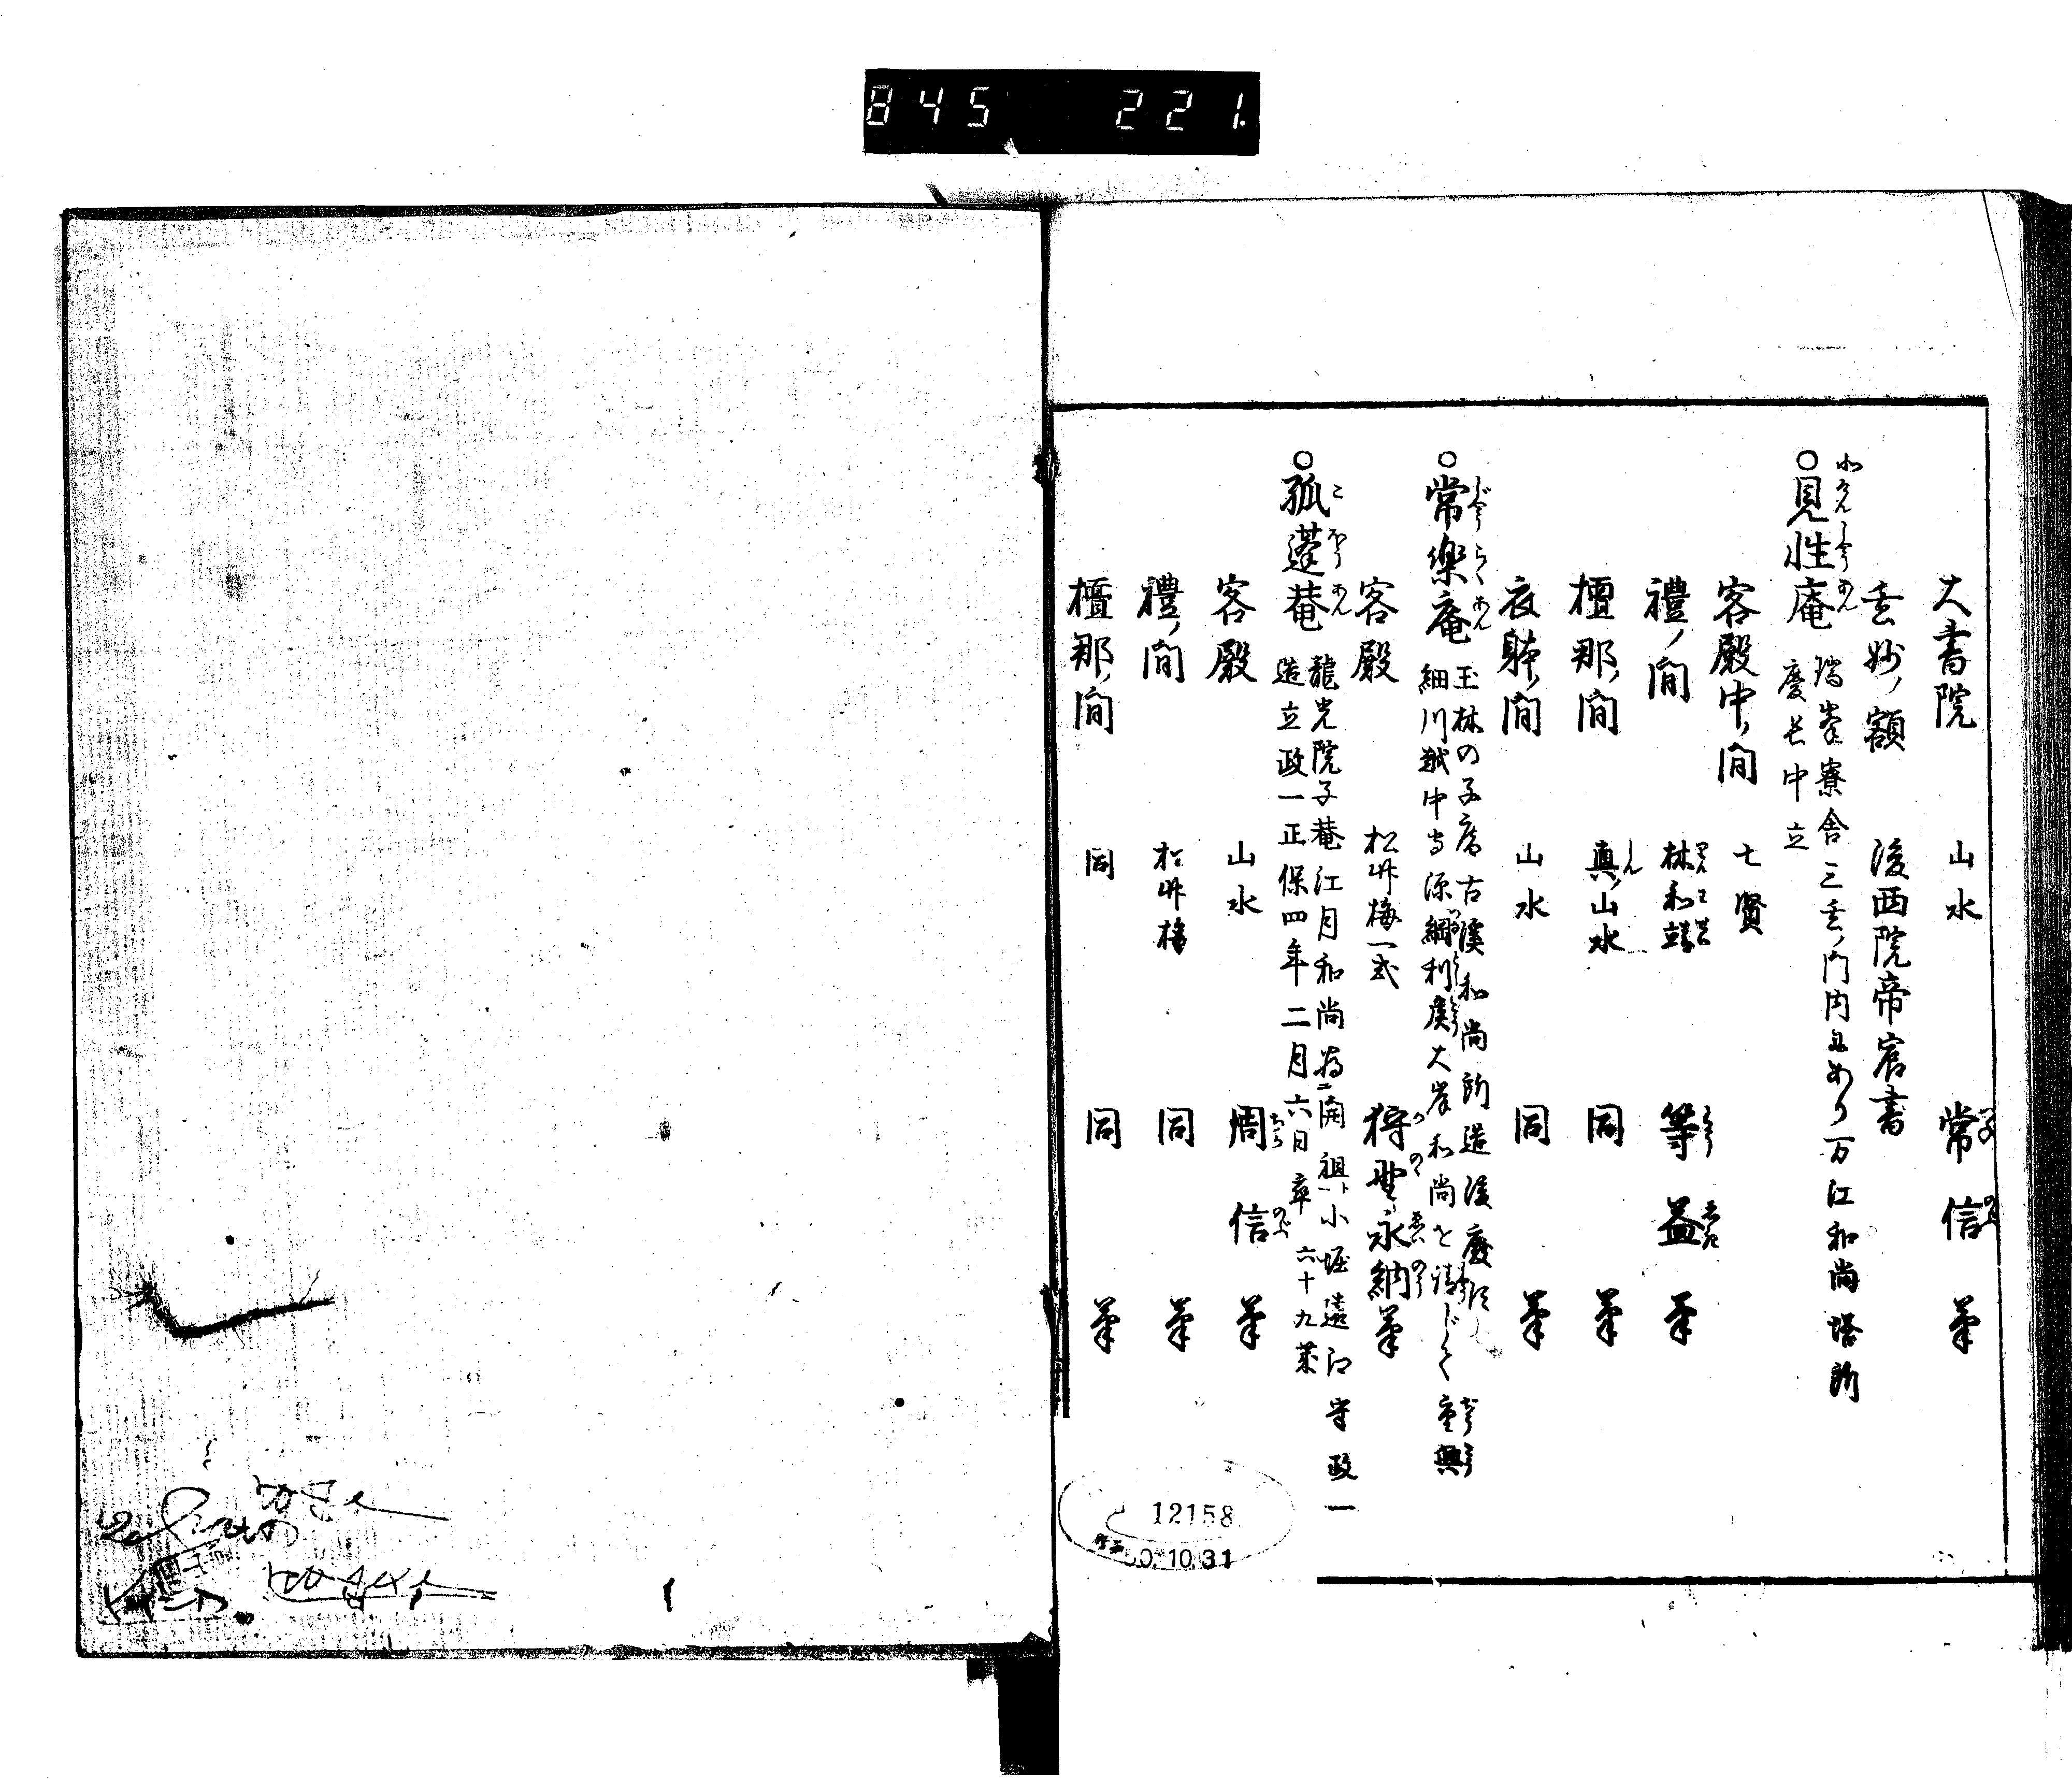 845 221.
大書院 山水 常信筆
玄妙ノ額 後西院帝宸書
○見性庵 瑞峯寮舎三玄ノ門内にあり万江和尚塔所
慶長中立
客殿中ノ間 七賢
禮ノ間 林和靖 等益筆
檀那ノ間 真ノ山水 同筆
衣鉢ノ間 山水 同筆
○常樂庵 玉林の子庵古溪和尚所造後廢
細川越中守源綱利侯大岸和尚を請じて重興
客殿 松竹梅一式 狩野永納筆
○孤蓬菴 龍光院子菴江月和尚為開祖小堀遠江守政一
造立政一正保四年二月六日卒六十九葉
客殿 山水 周信筆
禮ノ間 松竹梅 同筆
檀那ノ間 同 同筆
12158
10.31